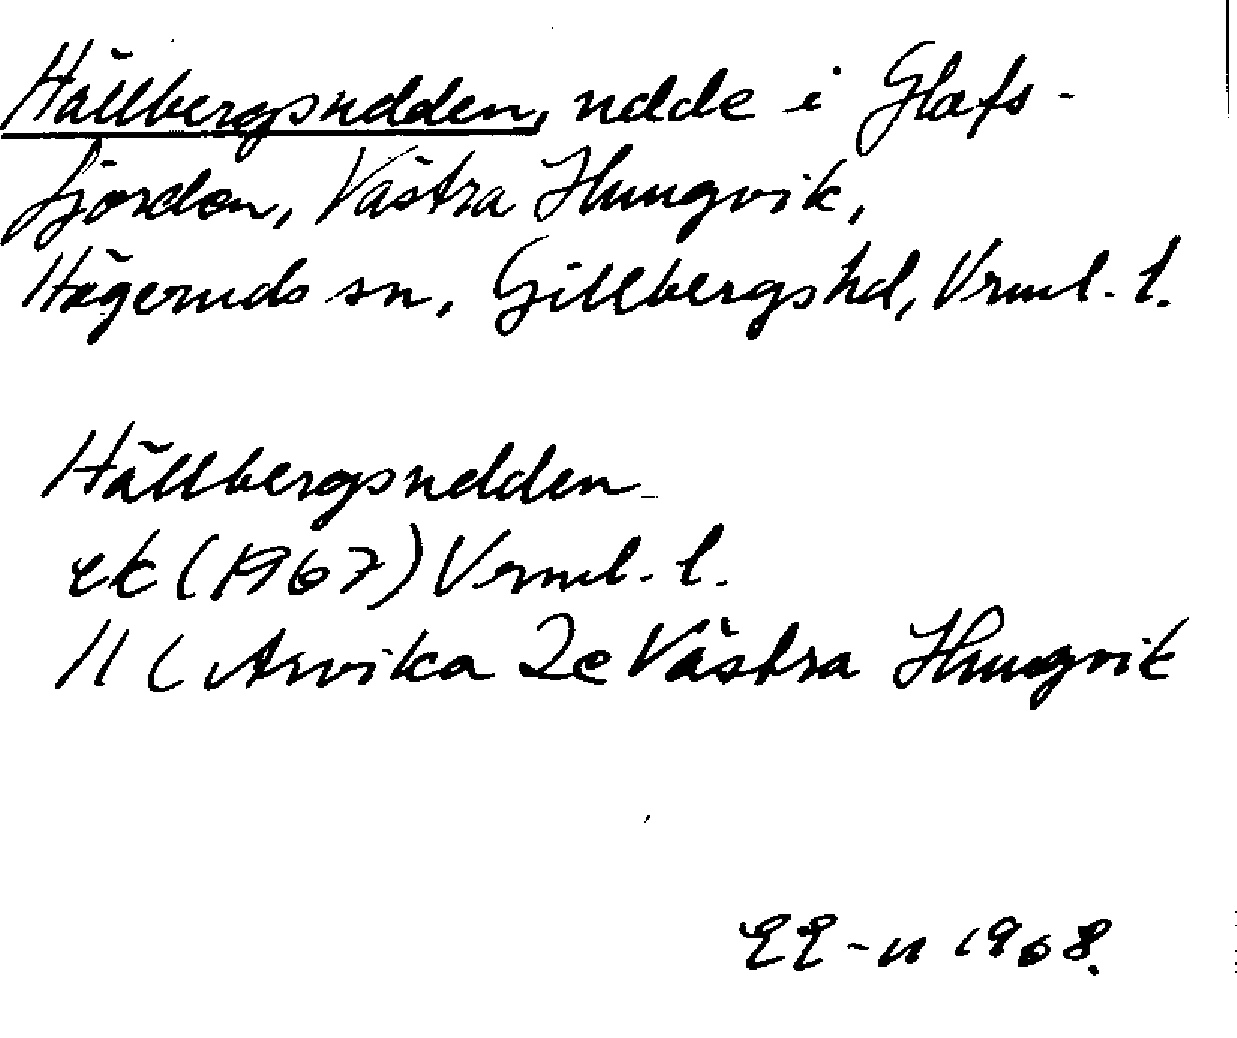 Hällbergsudden, udde i Glafs-
fjorden, Västra Hungvik,
Högeruds sn, Gillbergs hd, Vrml. l.
Hällbergsudden
ek (1967) Vrml. l.
11 C Arvika 2e Västra Hungvik
EE-n 1968.